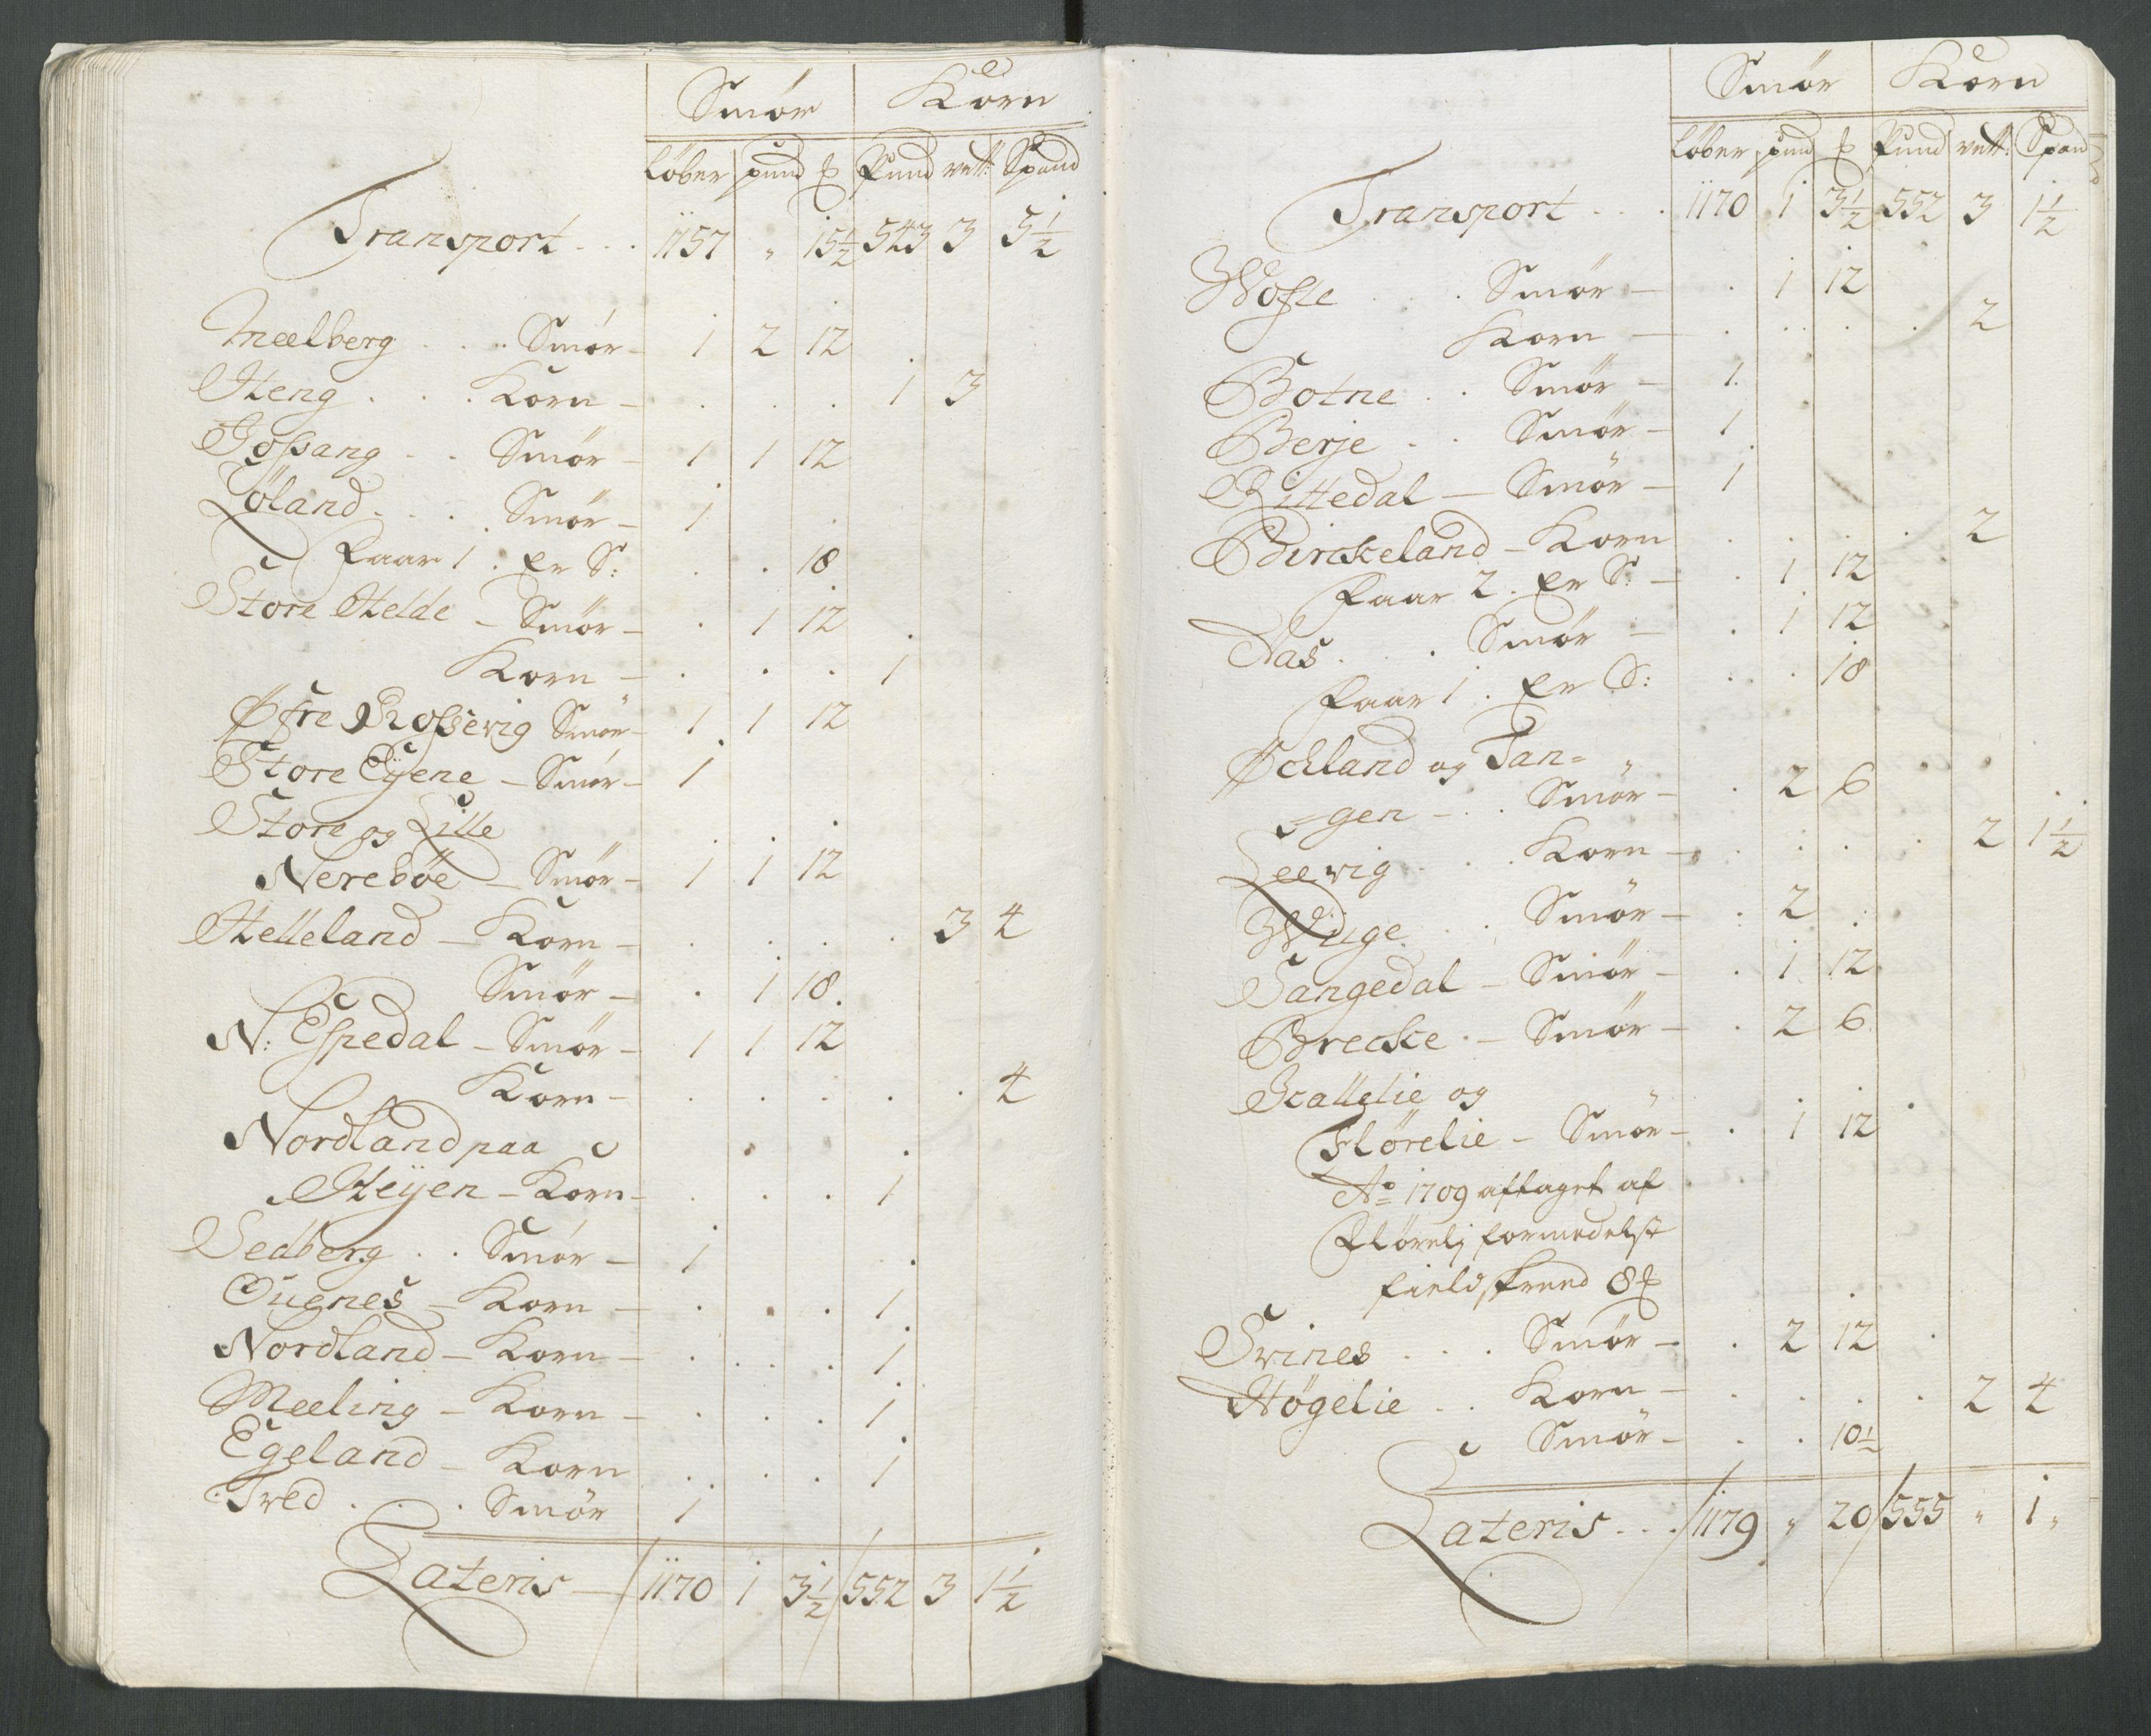 Smør Korn
Løber pund ℔ Pund vett: Spand
Transport . . . 1157 „ 15½ 543 3 5½
Meelberg . . . Smør – 1 2 12
Heng . . . Korn – . . . 1 3
Gossang . . Smør – 1 1 12
Løland . . . Smør – 1
Faar 1 . Er S: . . 18
Store Helde – Smør – . 1 12
Korn – . . . 1
Øfre Rossevig Smør – 1 1 12
Store Eÿene – Smør – 1
Store og Lille
Nereböe – Smør – 1 1 12
Helleland – Korn – . . . . 3 4
Smør – . 1 18
N: Espedal – Smør – 1 1 12
Korn – . . . . . 4
Nordland paa
Heÿen – Korn – . . . 1
Sedberg . . Smør – 1
Quenes – Korn – . . . 1
Nordland – Korn – . . . 1
Meeling – Korn – . . . 1
Egeland – Korn . . . 1
Tved . . . Smør 1
Lateris – 1170 1 3½ 552 3 1½
Smør Korn
Løber pund ℔ Pund vett: Spand
Transport . . . 1170 1 3½ 552 3 1½
Smør – . 1 12
Korn – . . . . 2
Botne . . Smør – 1
Berje . . Smør – 1
Smør – 1
Birckeland – Korn . . . . 2
Faar 2 . Er S: – . 1 12
Aas . . . Smør – . 1 12
Faar 1 . Er S: . . 18
Ødland og Tan=
=gen – . . Smør – . 2 6
Leevig . . . Korn – . . . . 2 1½
Wiige . . . Smør – . 2 .
Sangedal – Smør – . 1 12
Brecke . – Smør – . 2 6
Scallelie og
Flörelie – Smør – . 1 12
Ao 1709 aftaget af
Flörelj formedelst
field skreed 8 ℔
Svines . . . Smør – . 2 12
Högelie . . Korn – . . . . 2 4
Smør – . . 10½
Lateris . . . 1179 „ 20 555 „ 1 „